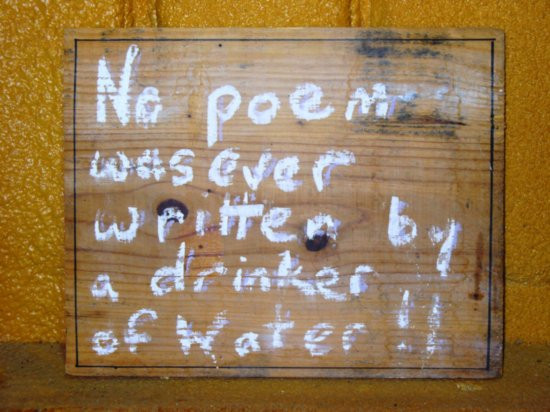 No poem
was ever
written by
a drinker
of Water !!